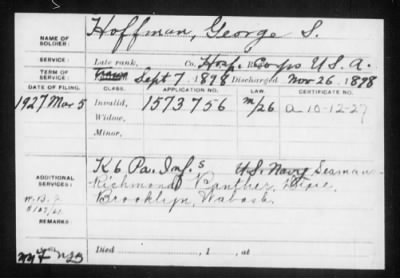 NAME OF SOLDIER: Hoffman, George S.
SERVICE: Late rank, Co. Hosp. Corps U.S.A.
TERM OF SERVICE: Sept 7, 1898 Discharged Nov 26, 1898
DATE OF FILING. CLASS. APPLICATION NO. LAW. CERTIFICATE NO.
1927 Mar 5 Invalid, 1573756 M/26 a 10-12-27
Widow,
Minor,
ADDITIONAL SERVICES: K 6 Pa. Inf. U.S. Navy Seaman
Richmond, Panther, Dixie,
Brooklyn, Wabash
REMARKS:
Died , 1 , at